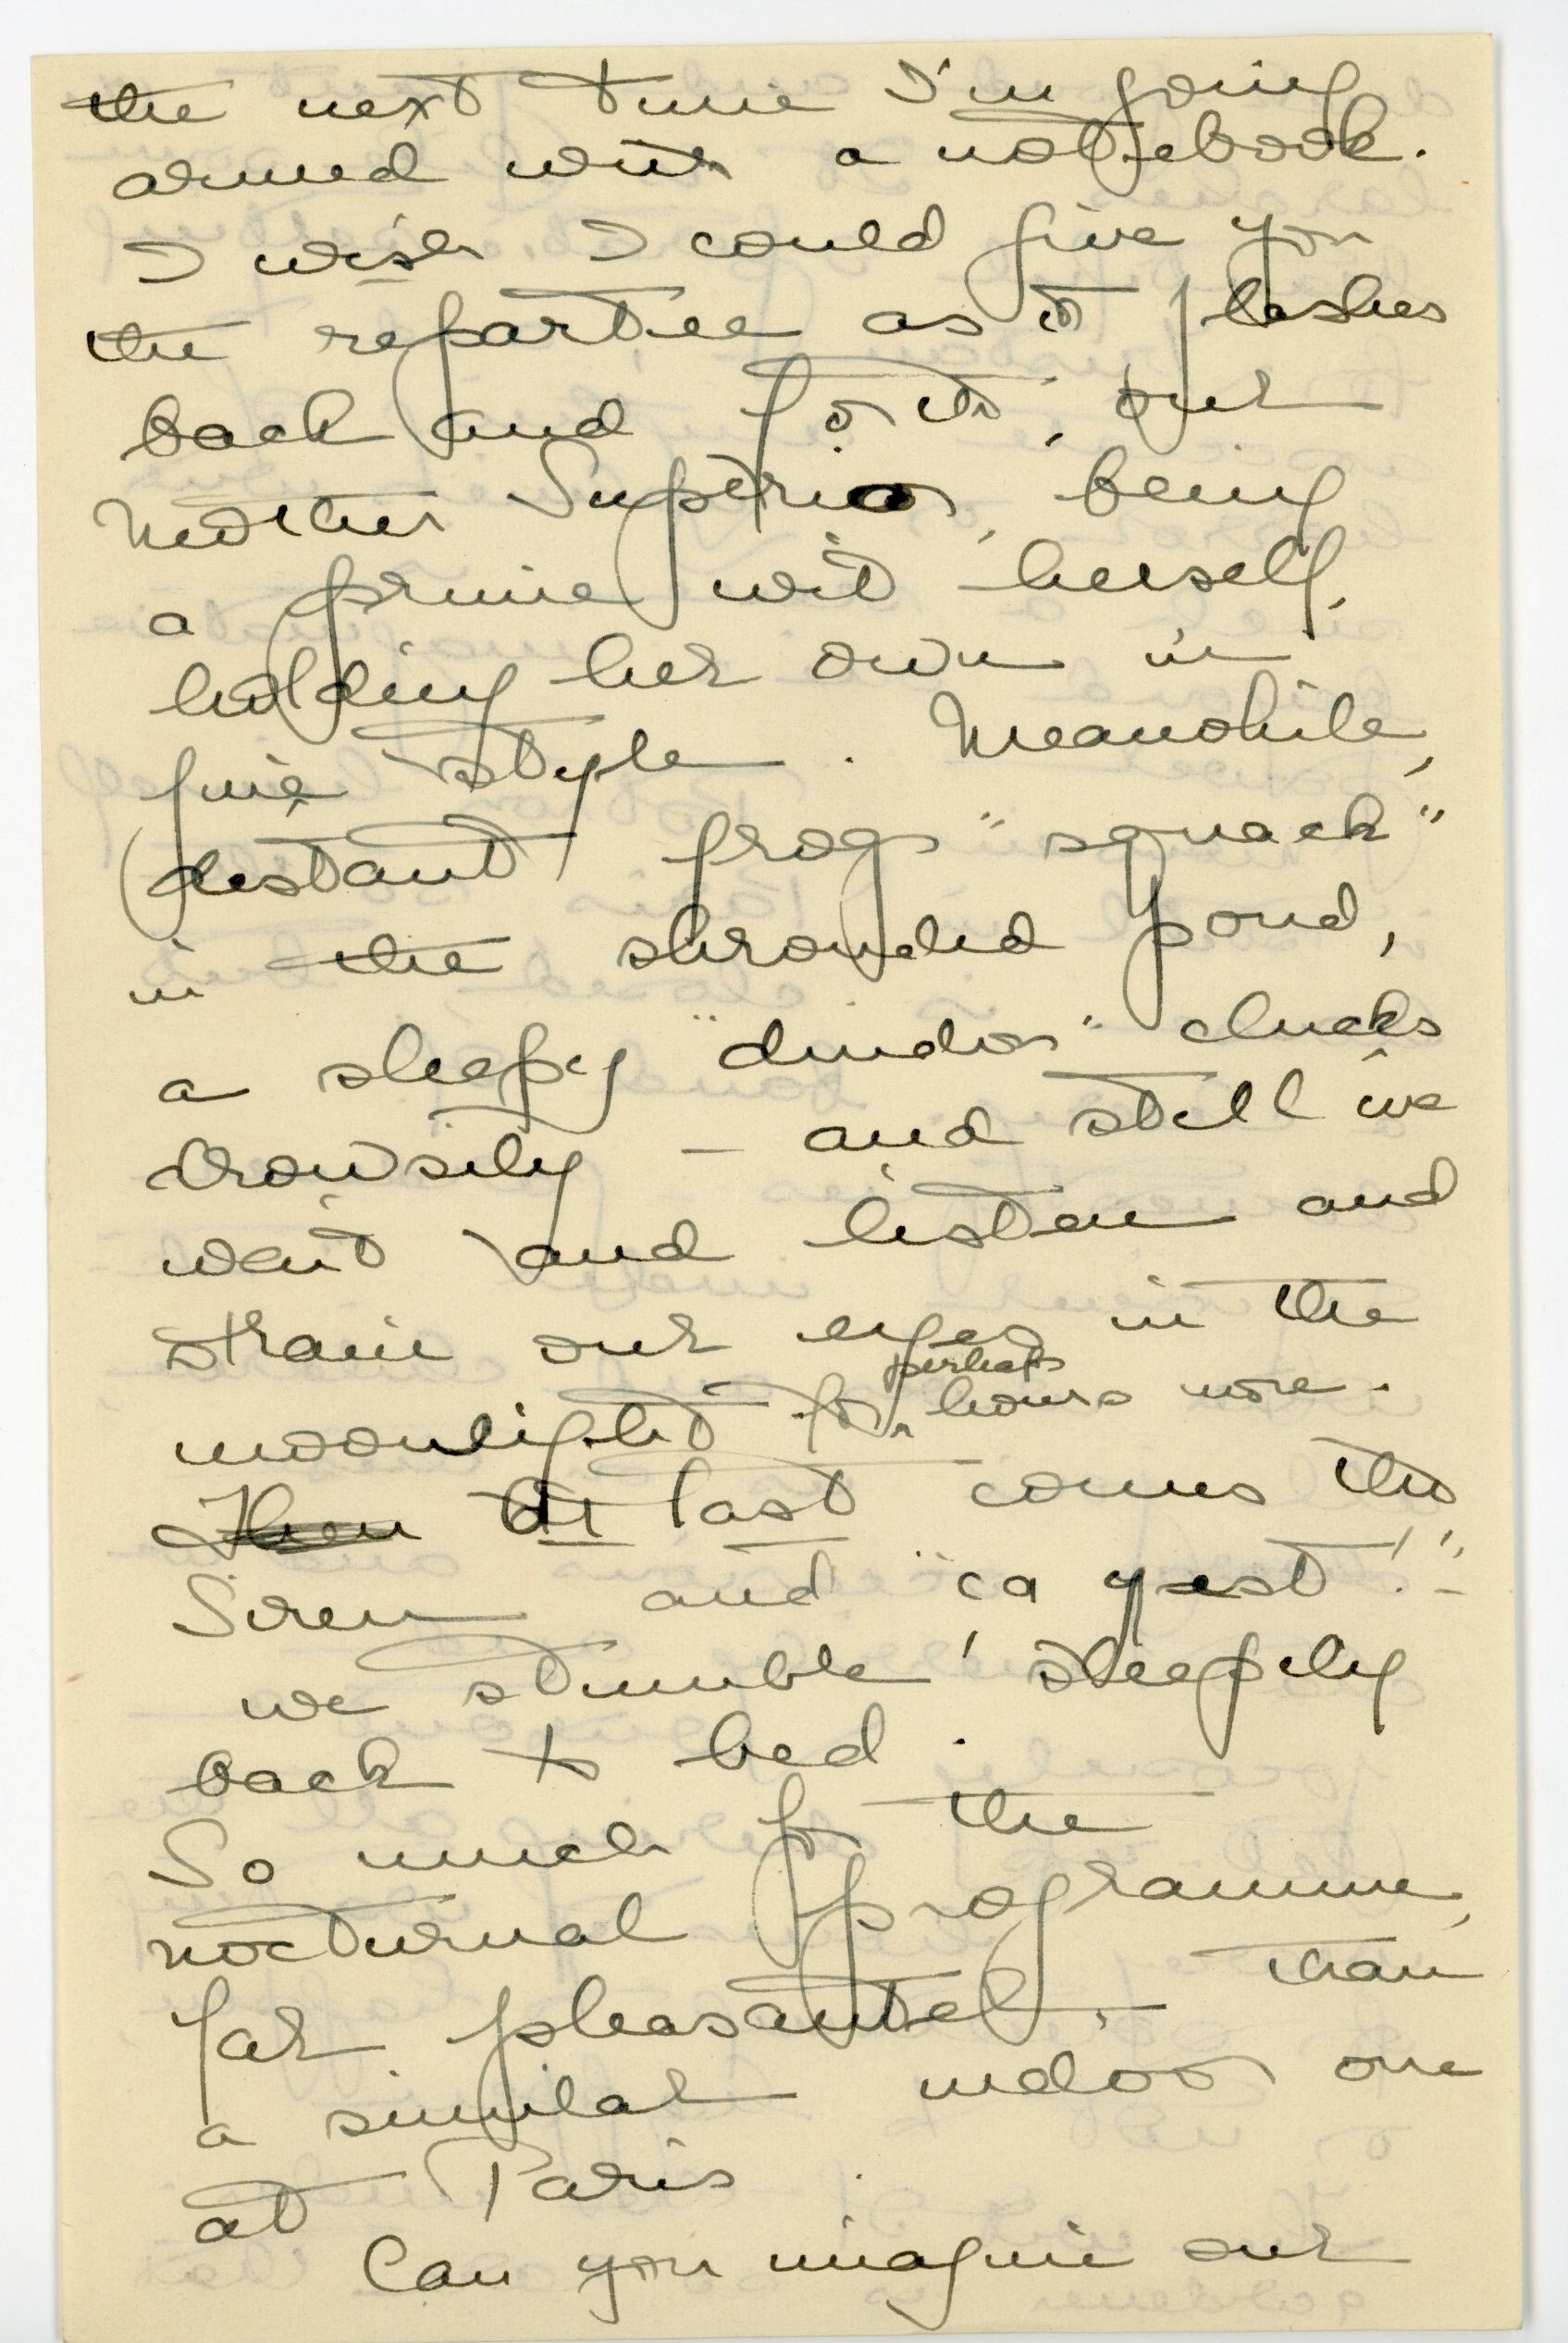 the next time I'm going
armed with a notebook.
I wish I could give you
the repartee as it flashes
back and forth, our
Mother Superior, being
a prime wit herself,
holding her own in
fine style. Meanwhile,
distant frogs "squack"
in the shrouded pond,
a sleepy "dindon" clucks
drowsily – and still we
wait and listen and
strain our eyes in the
moonlight for perhaps hours more.
Then At last comes the
Siren and "ça y est!" –
we stumble sleepily
back to bed.
So much for the
nocturnal programme,
far pleasanter, than
a similar indoor one
at Paris.
Can you imagine our